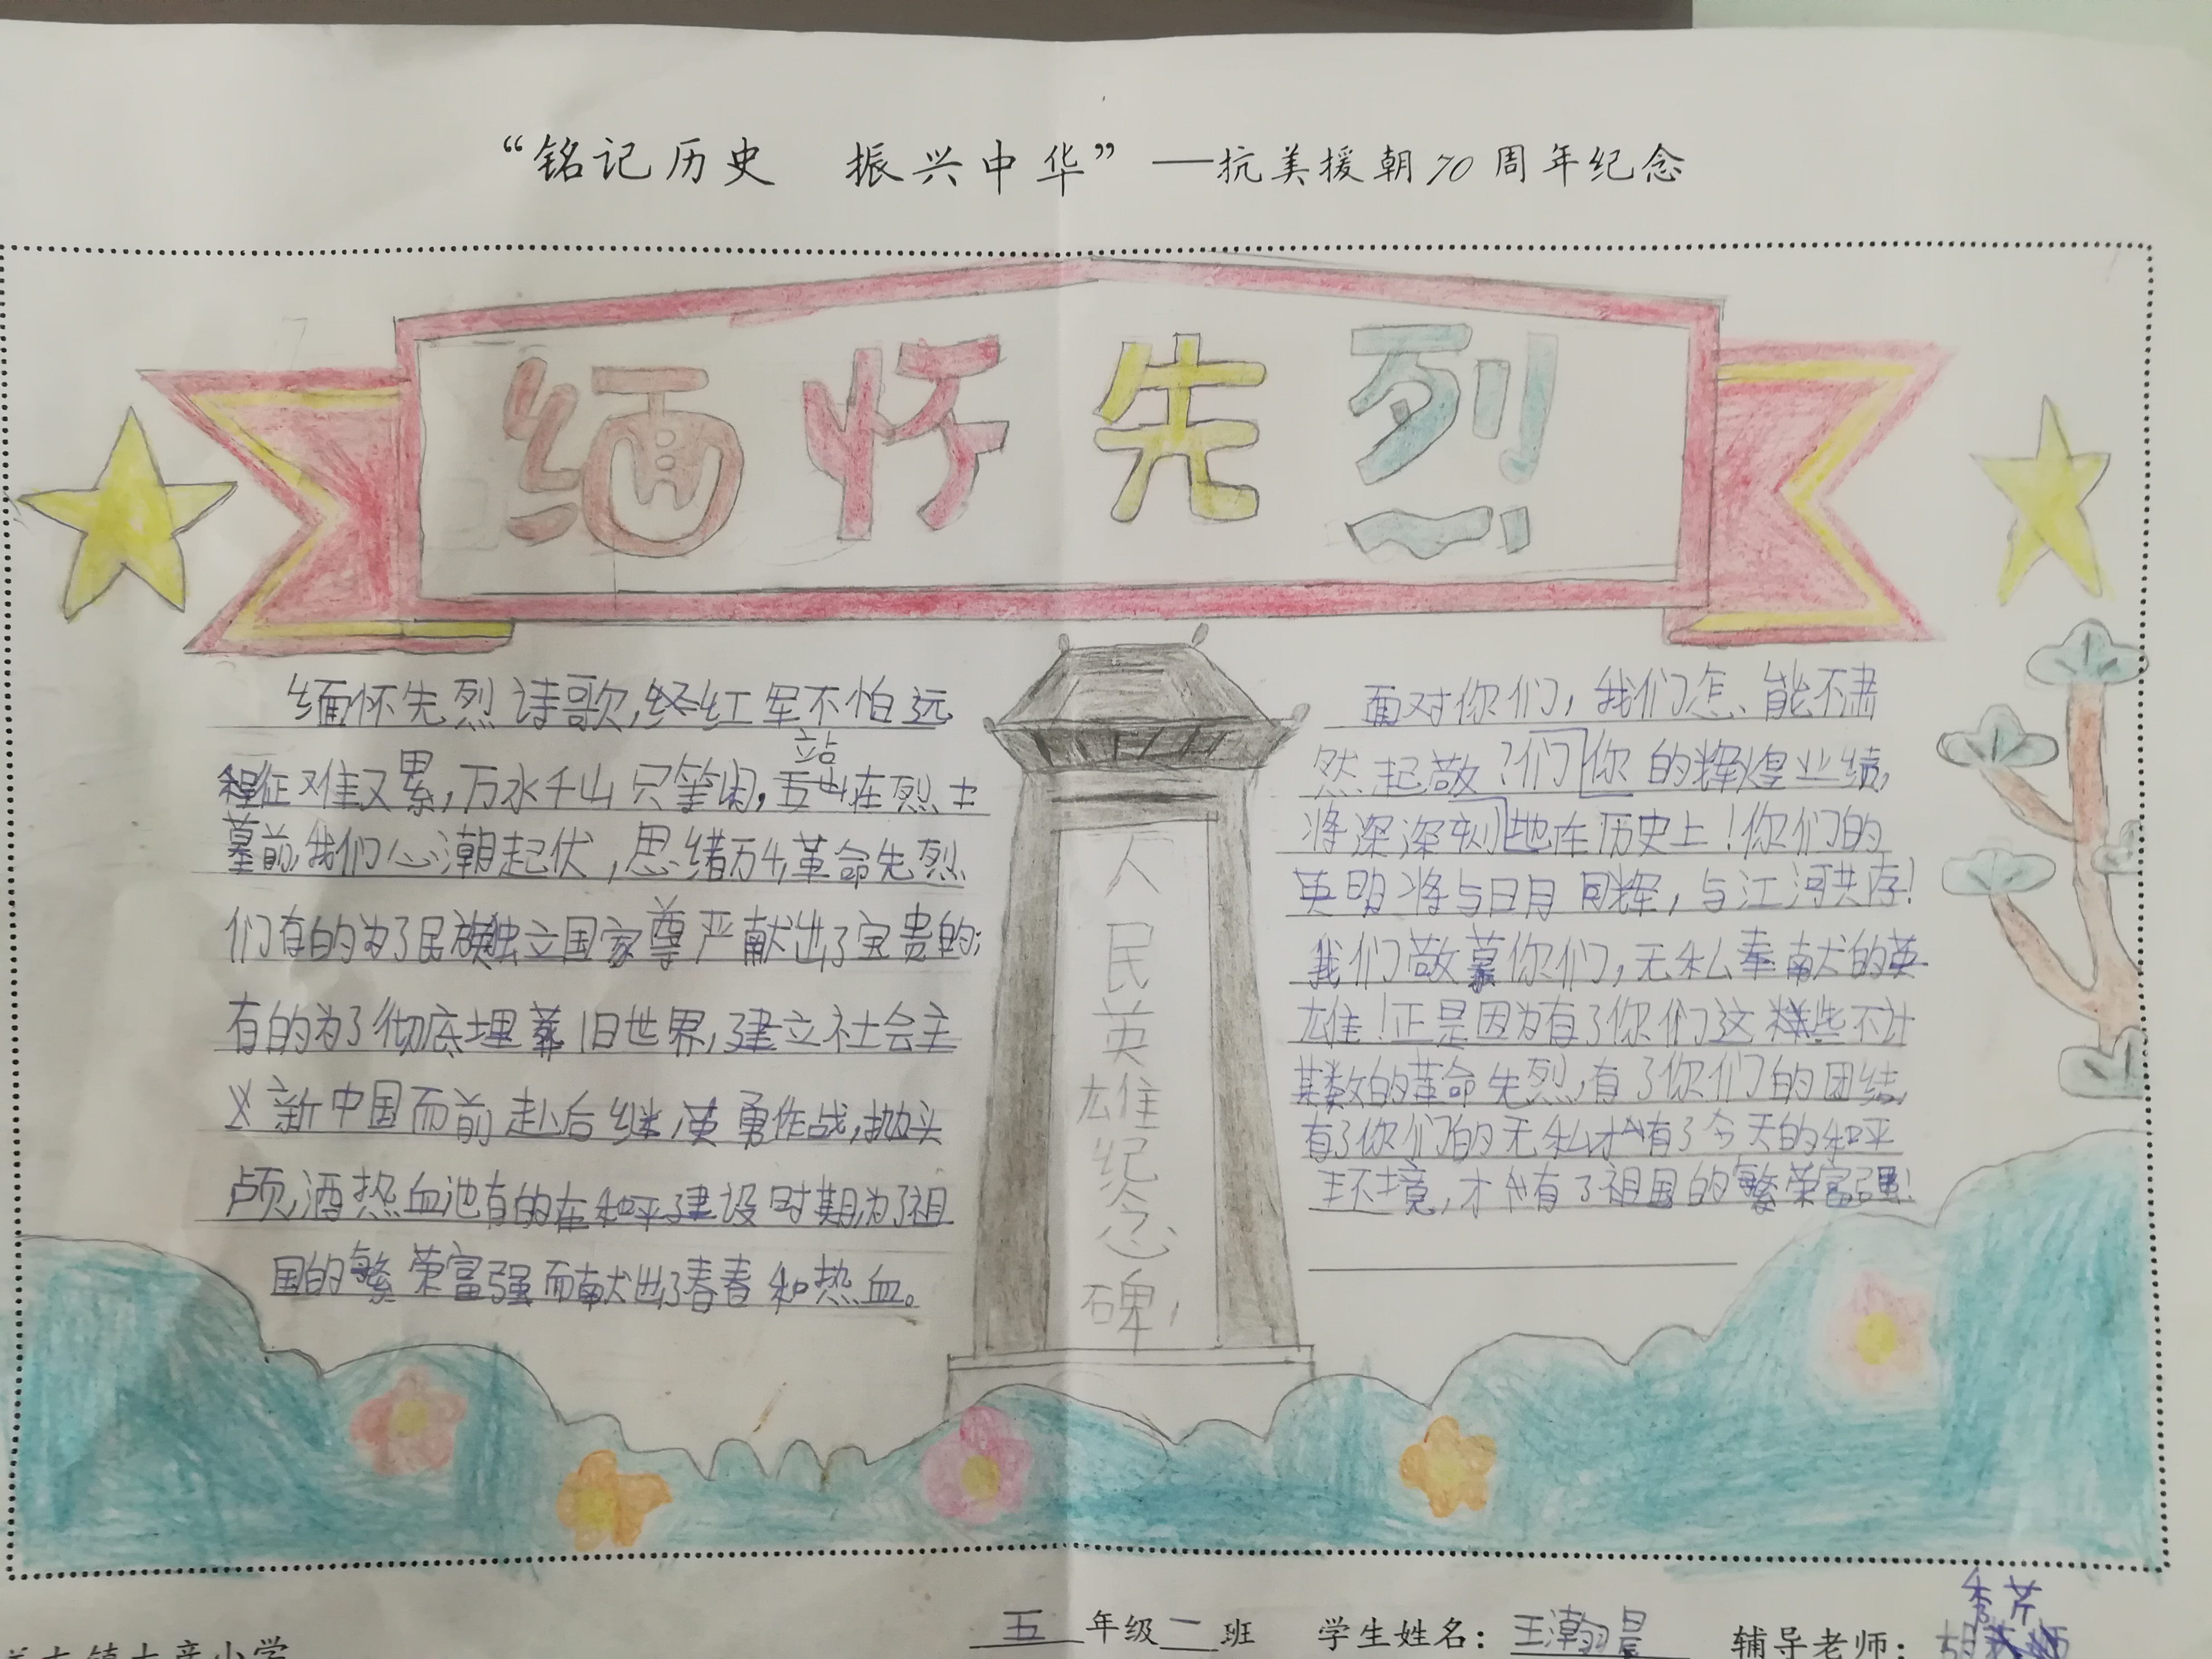 “铭记历史 振兴中华”——抗美援朝70周年纪念
缅怀先烈
缅怀先烈诗歌,红军不怕远
征难又累,万水千山只等闲,站在烈士
墓前,我们心潮起伏,思绪万千,革命先烈
们有的为了民族独立国家尊严献出了宝贵的;
有的为了彻底埋葬旧世界,建立社会主
义新中国而前赴后继,英勇作战,抛头
颅,洒热血池有的在和平建设时期,为了祖
国的繁荣富强而献出了春春和热血。
人
民
英
雄
纪
念
碑
面对你们,我们怎能不肃
然起敬?们你的辉煌业绩,
将深深刻地在历史上!你们的
英明将与日月同辉,与江河共存!
我们敬慕你们,无私奉献的英
雄!正是因为有了你们这些不计
其数的革命先烈,有了你们的团结,
有了你们的无私才有了今天的和平
环境,才有了祖国的繁荣富强!
小学
五年级二班 学生姓名:王瀚晨 辅导老师:季芹